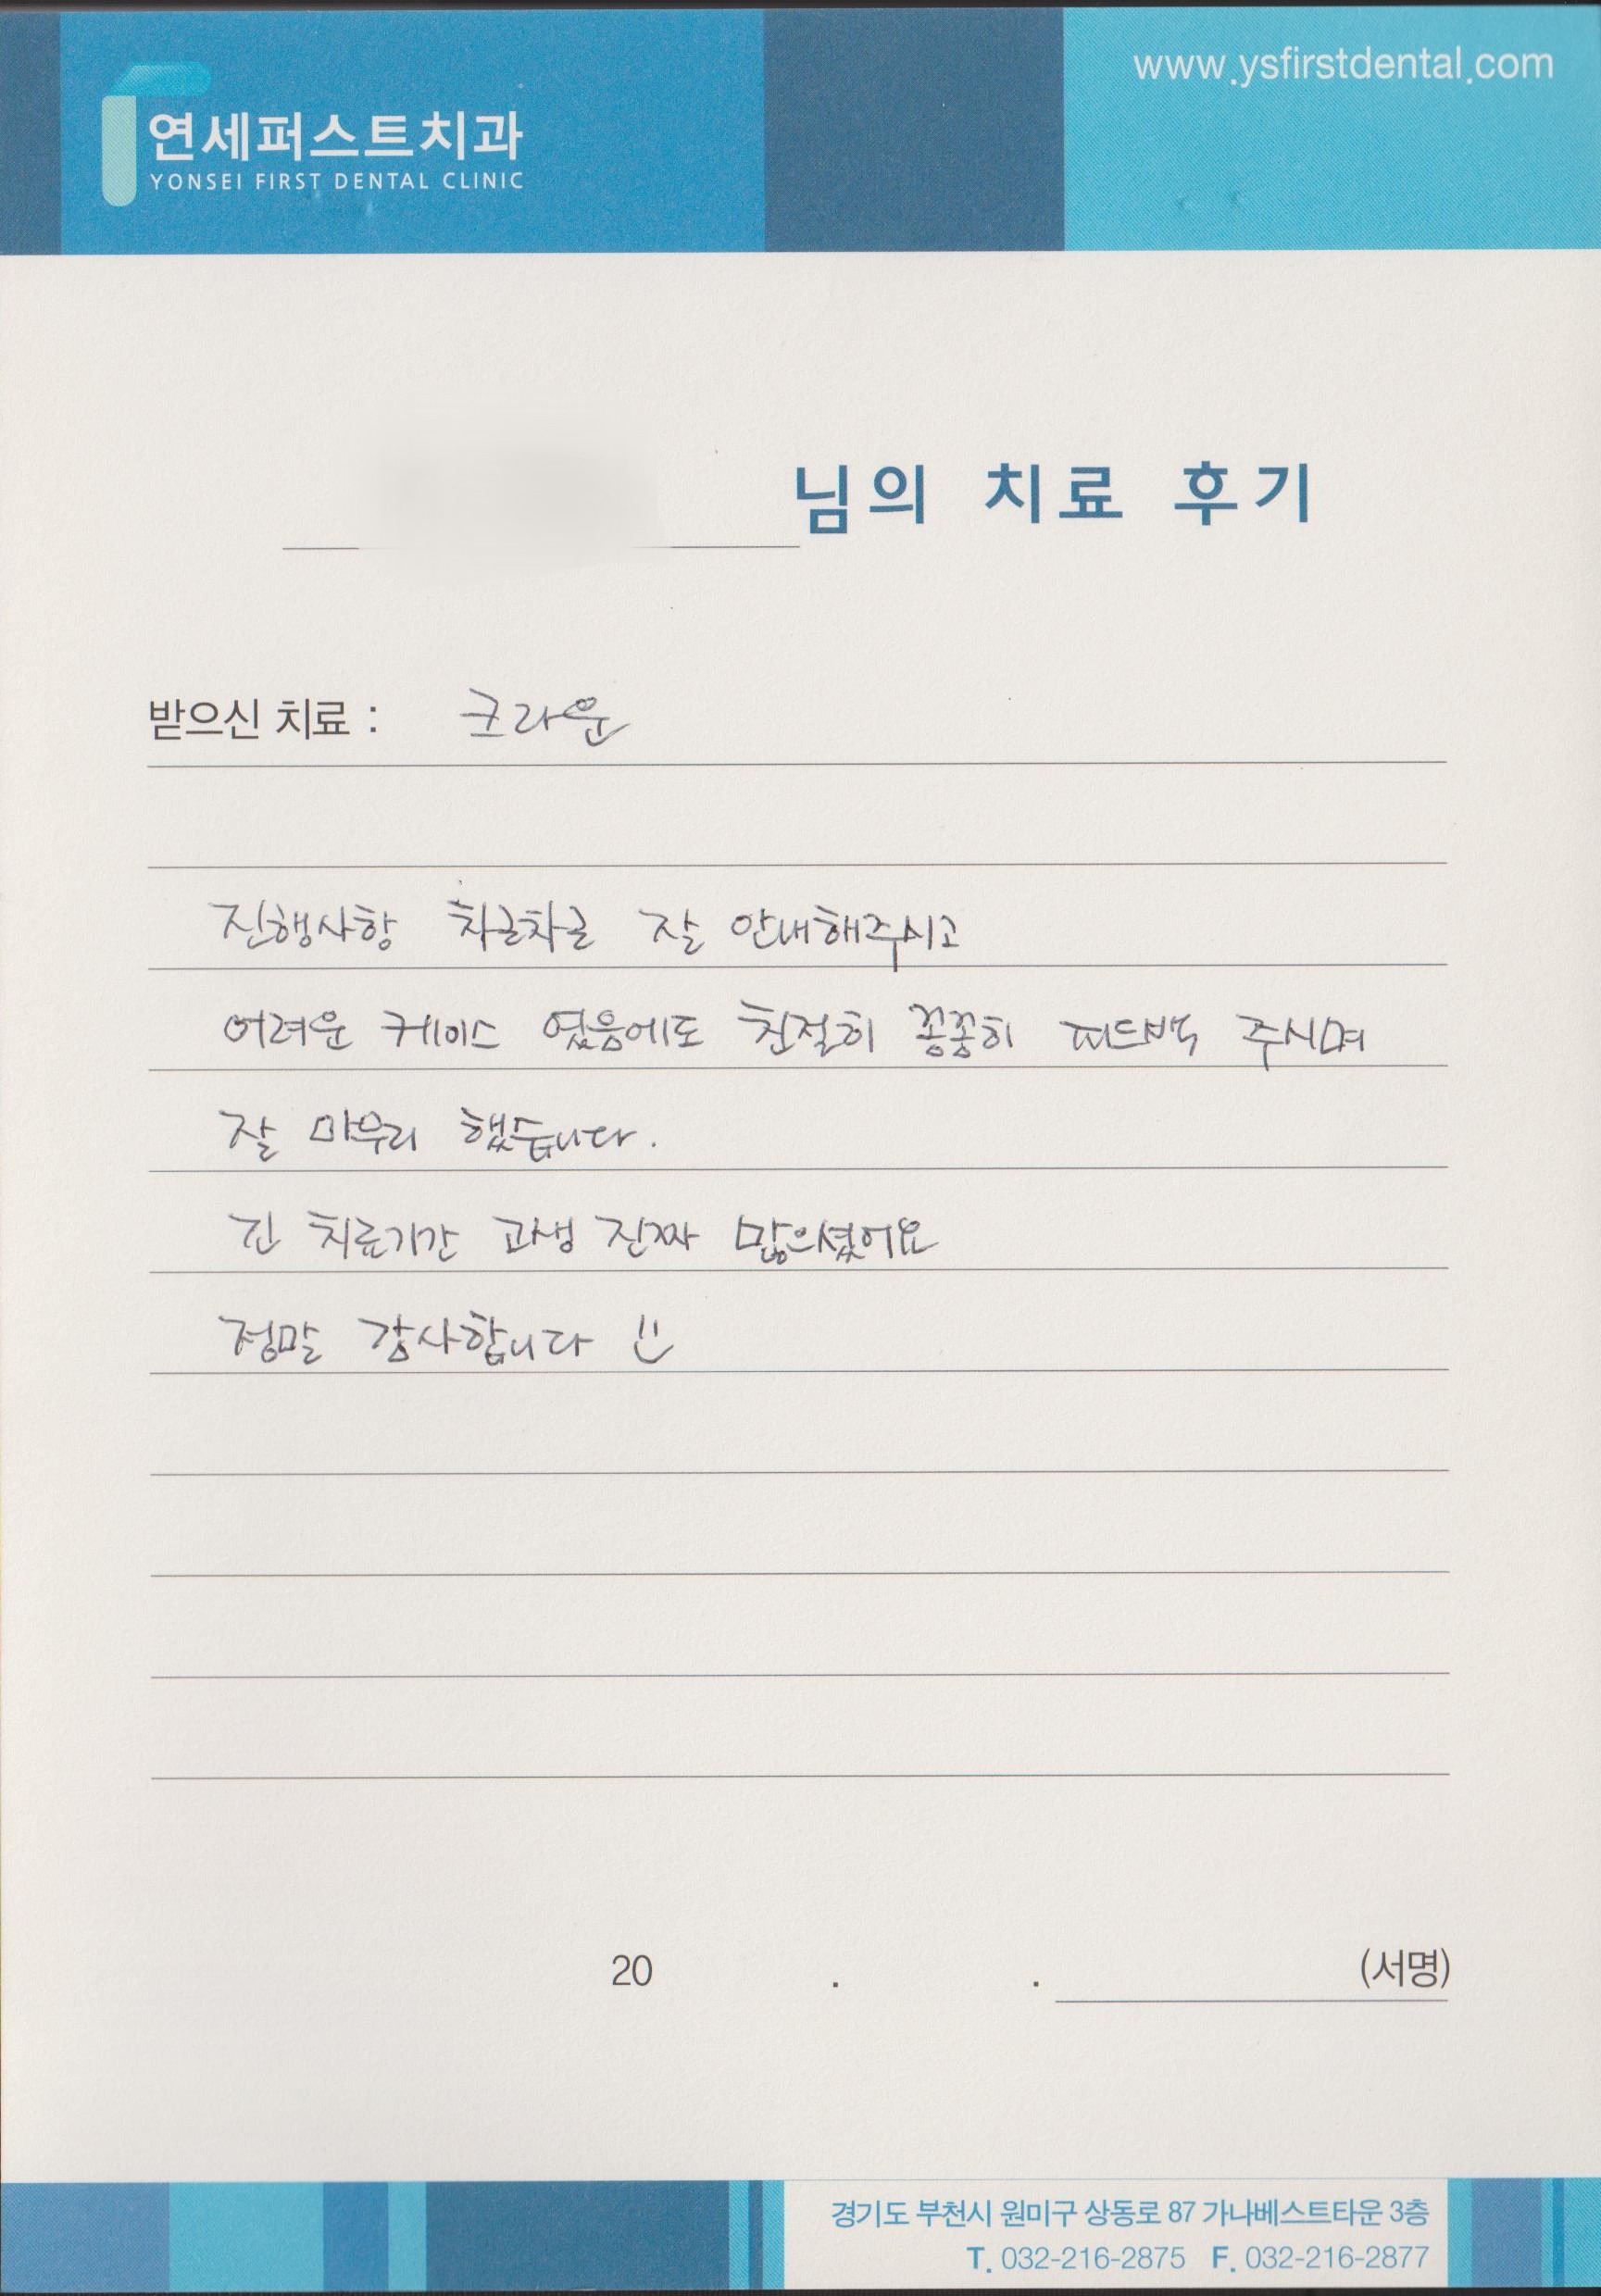 www.ysfirstdental.com
연세퍼스트치과
YONSEI FIRST DENTAL CLINIC
님의 치료 후기
받으신 치료 : 크라운
진행사항 차글차글 잘 안내해주시고
어려운 케이스 였음에도 친절히 꽁꽁히 피드백 주시며
잘 마무리 했습니다.
긴 치료기간 고생 진짜 많으셨어요
정말 감사합니다 :)
20 . . (서명)
경기도 부천시 원미구 상동로 87 가나베스트타운 3층
T. 032-216-2875 F. 032-216-2877